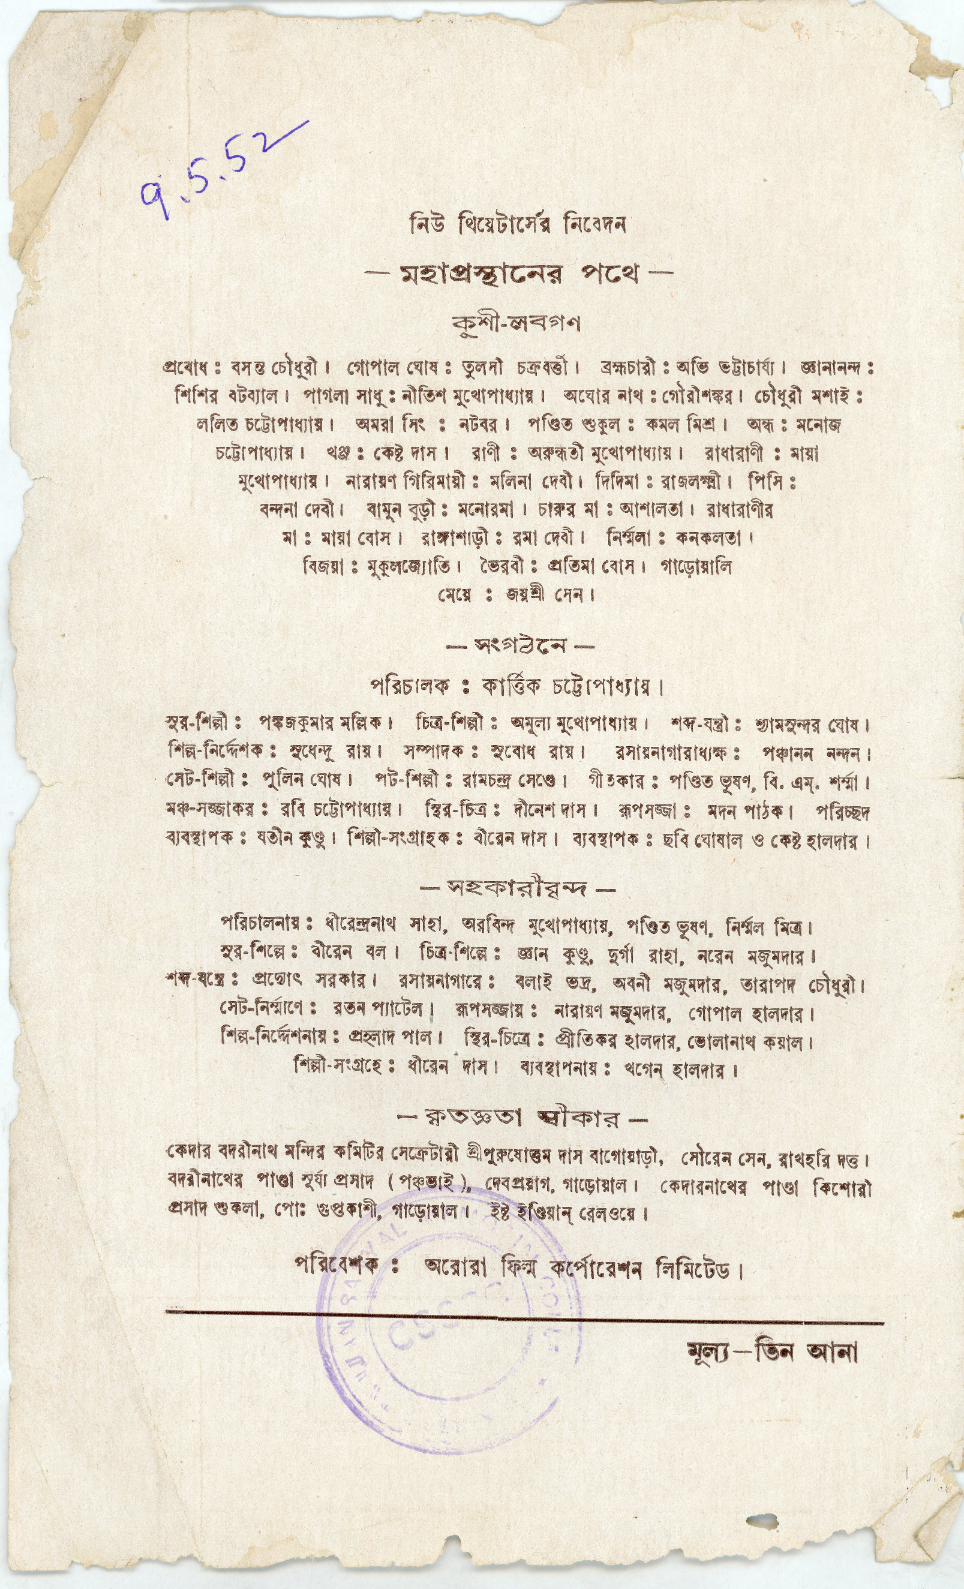 9.5.52
নিউ থিয়েটার্সের নিবেদন
— মহাপ্রস্থানের পথে —
কুশী-লবগণ
প্রবোধ : বসন্ত চৌধুরী। গোপাল ঘোষ : তুলসী চক্রবর্ত্তী। ব্রহ্মচারী : অভি ভট্টাচার্য্য। জ্ঞানানন্দ :
শিশির বটব্যাল। পাগলা সাধু : নীতিশ মুখোপাধ্যায়। অঘোর নাথ : গৌরীশঙ্কর। চৌধুরী মশাই :
ললিত চট্টোপাধ্যায়। অমরা সিং : নটবর। পণ্ডিত শুকুল : কমল মিশ্র। অন্ধ : মনোজ
চট্টোপাধ্যায়। খঞ্জ : কেষ্ট দাস। রাণী : অরুন্ধতী মুখোপাধ্যায়। রাধারাণী : মায়া
মুখোপাধ্যায়। নারায়ণ গিরিমায়ী : মলিনা দেবী। দিদিমা : রাজলক্ষ্মী। পিসি :
বন্দনা দেবী। বামুন বুড়ী : মনোরমা। চারুর মা : আশালতা। রাধারাণীর
মা : মায়া বোস। রাঙ্গাশাড়ী : রমা দেবী। নির্ম্মলা : কনকলতা।
বিজয়া : মুকুলজ্যোতি। ভৈরবী : প্রতিমা বোস। গাড়োয়ালি
মেয়ে : জয়শ্রী সেন।
— সংগঠনে —
পরিচালক : কার্ত্তিক চট্টোপাধ্যায়।
সুর-শিল্পী : পঙ্কজকুমার মল্লিক। চিত্র-শিল্পী : অমূল্য মুখোপাধ্যায়। শব্দ-যন্ত্রী : শ্যামসুন্দর ঘোষ।
শিল্প-নির্দ্দেশক : সুধেন্দু রায়। সম্পাদক : সুবোধ রায়। রসায়নাগারাধ্যক্ষ : পঞ্চানন নন্দন।
সেট-শিল্পী : পুলিন ঘোষ। পট-শিল্পী : রামচন্দ্র সেণ্ডে। গীতকার : পণ্ডিত ভূষণ, বি. এম্. শর্ম্মা।
মঞ্চ-সজ্জাকর : রবি চট্টোপাধ্যায়। স্থির-চিত্র : দীনেশ দাস। রূপসজ্জা : মদন পাঠক। পরিচ্ছদ
ব্যবস্থাপক : যতীন কুণ্ডু। শিল্পী-সংগ্রাহক : বীরেন দাস। ব্যবস্থাপক : ছবি ঘোষাল ও কেষ্ট হালদার।
— সহকারীবৃন্দ —
পরিচালনায় : ধীরেন্দ্রনাথ সাহা, অরবিন্দ মুখোপাধ্যায়, পণ্ডিত ভূষণ, নির্ম্মল মিত্র।
সুর-শিল্পে : বীরেন বল। চিত্র-শিল্পে : জ্ঞান কুণ্ডু, দুর্গা রাহা, নরেন মজুমদার।
শব্দ-যন্ত্রে : প্রদ্যোৎ সরকার। রসায়নাগারে : বলাই ভদ্র, অবনী মজুমদার, তারাপদ চৌধুরী।
সেট-নির্ম্মাণে : রতন প্যাটেল। রূপসজ্জায় : নারায়ণ মজুমদার, গোপাল হালদার।
শিল্প-নির্দ্দেশনায় : প্রহ্লাদ পাল। স্থির-চিত্রে : প্রীতিকর হালদার, ভোলানাথ কয়াল।
শিল্পী-সংগ্রহে : ধীরেন দাস। ব্যবস্থাপনায় : খগেন্ হালদার।
— কৃতজ্ঞতা স্বীকার —
কেদার বদরীনাথ মন্দির কমিটির সেক্রেটারী শ্রীপুরুষোত্তম দাস বাগোয়াড়ী, সৌরেন সেন, রাখহরি দত্ত।
বদরীনাথের পাণ্ডা সূর্য্য প্রসাদ ( পঞ্চভাই ), দেবপ্রয়াগ, গাড়োয়াল। কেদারনাথের পাণ্ডা কিশোরী
প্রসাদ শুকলা, পোঃ গুপ্তকাশী, গাড়োয়াল। ইষ্ট ইণ্ডিয়ান্ রেলওয়ে।
পরিবেশক : অরোরা ফিল্ম কর্পোরেশন লিমিটেড।
মূল্য—তিন আনা